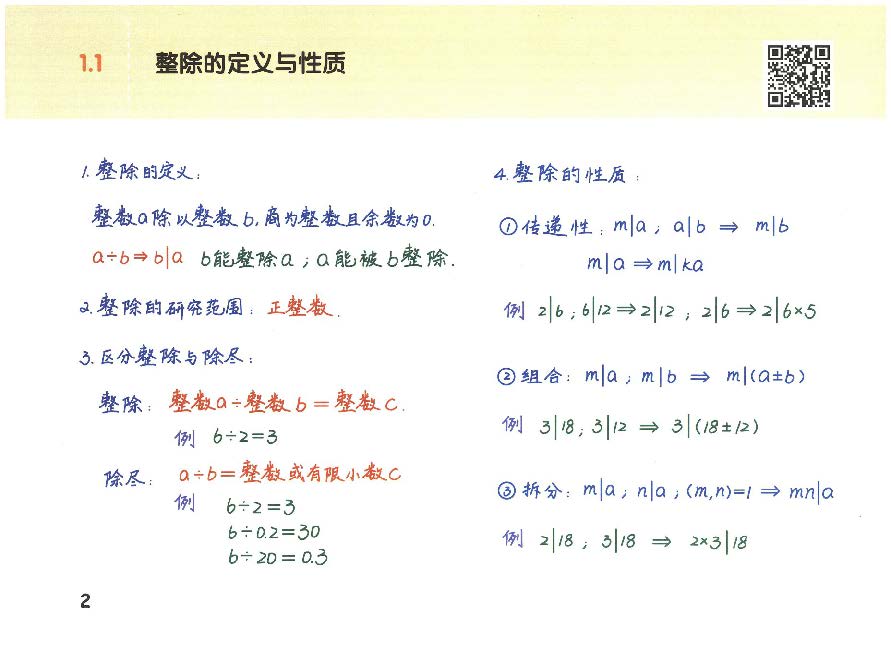 1.1 整除的定义与性质
1. 整除的定义：
整数a除以整数b，商为整数且余数为0.
a÷b⇒b|a b能整除a；a能被b整除.
2. 整除的研究范围：正整数.
3. 区分整除与除尽：
整除：整数a÷整数b=整数c.
例 6÷2=3
除尽：a÷b=整数或有限小数c
例 6÷2=3
6÷0.2=30
6÷20=0.3
4. 整除的性质：
①传递性：m|a；a|b ⇒ m|b
m|a ⇒ m|ka
例 2|6；6|12⇒2|12；2|6⇒2|6×5
②组合：m|a；m|b ⇒ m|(a±b)
例 3|18；3|12 ⇒ 3|(18±12)
③拆分：m|a；n|a；(m,n)=1 ⇒ mn|a
例 2|18；3|18 ⇒ 2×3|18
2